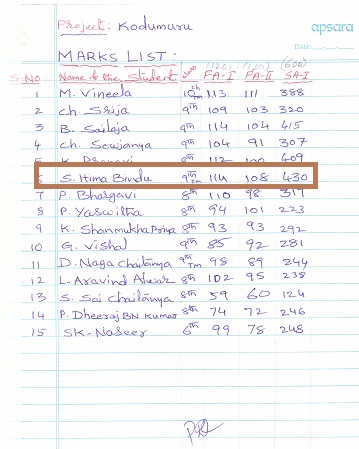 Project: Kodumuru
apsara
Date:
MARKS LIST:
(120) (120) (600)
S.NO. Name of the Student FA-I FA-II SA-I
1 M. Vineela 10th 113 111 388
2 Ch Srija 9th 109 103 320
3 B. Sailaja 9th 114 104 415
4 Ch. Sowjanya 9th 104 91 307
5 K. Pranavi 8th 112 100 409
6 S. Hima Bindu 9th TM 114 108 430
7 P. Bhargavi 8th 110 98 317
8 P. Yaswitha 8th 94 101 223
9 K. Shanmukha Priya 8th 93 93 292
10 G. Vishal 9th 85 92 281
11 D. Naga Chaitanya 9th TM 98 89 244
12 L. Aravind 8th 102 95 238
13 S. Sai Chaitanya 8th 59 60 124
14 P. Dheeraj BN Kumar 8th 74 72 246
15 SK. Naseer 6th 99 78 248